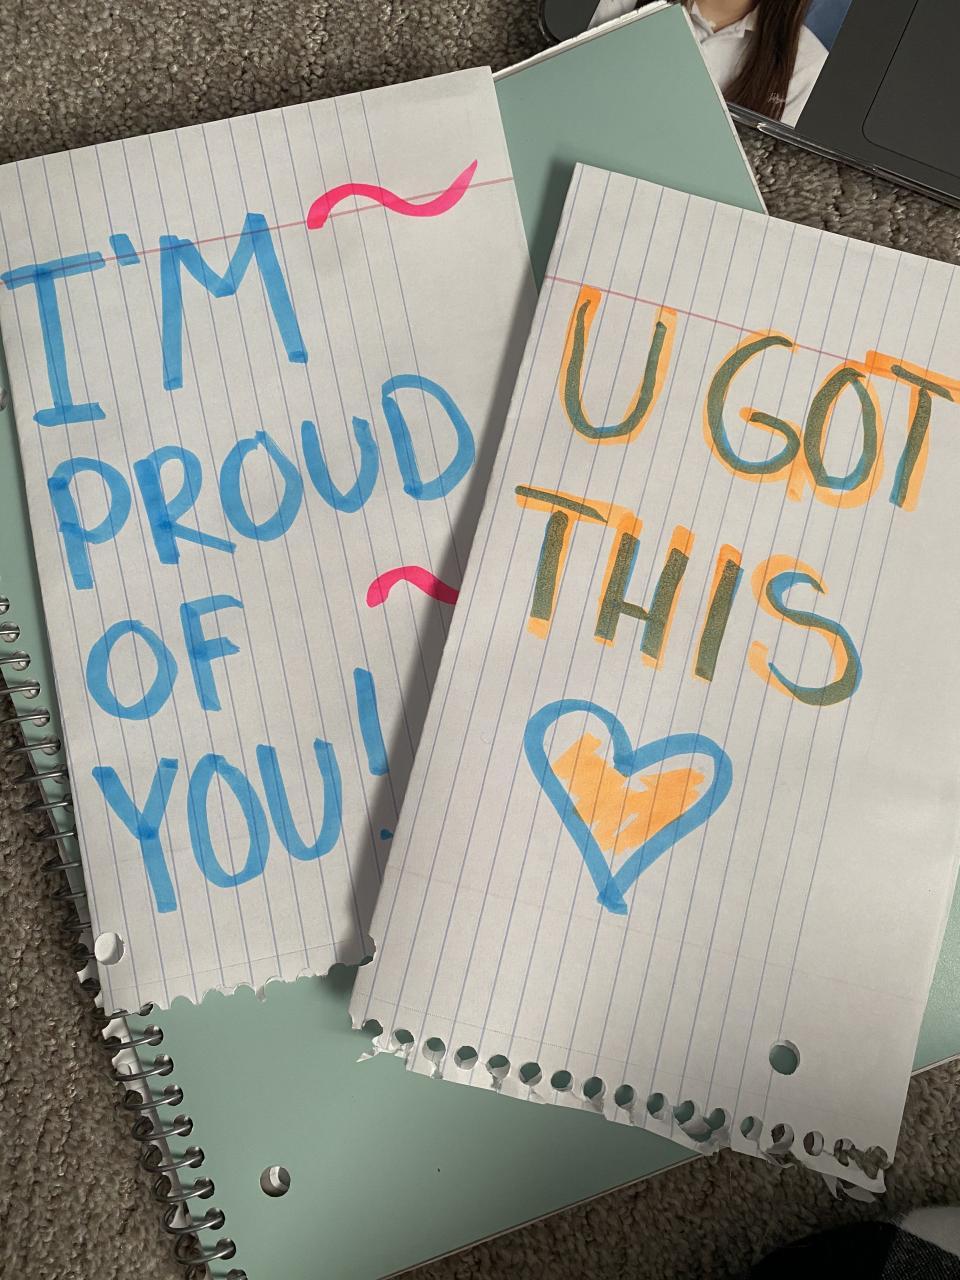 I'M
PROUD
OF
YOU!
U GOT
THIS